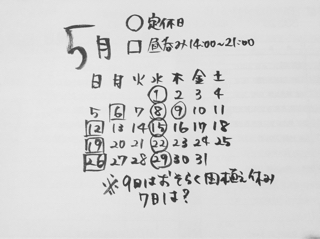 5月
○定休日
□昼呑み14:00~21:00
日 月 火 水 木 金 土
1 2 3 4
5 6 7 8 9 10 11
12 13 14 15 16 17 18
19 20 21 22 23 24 25
26 27 28 29 30 31
※9日はおそらく田植え休み
7日は?